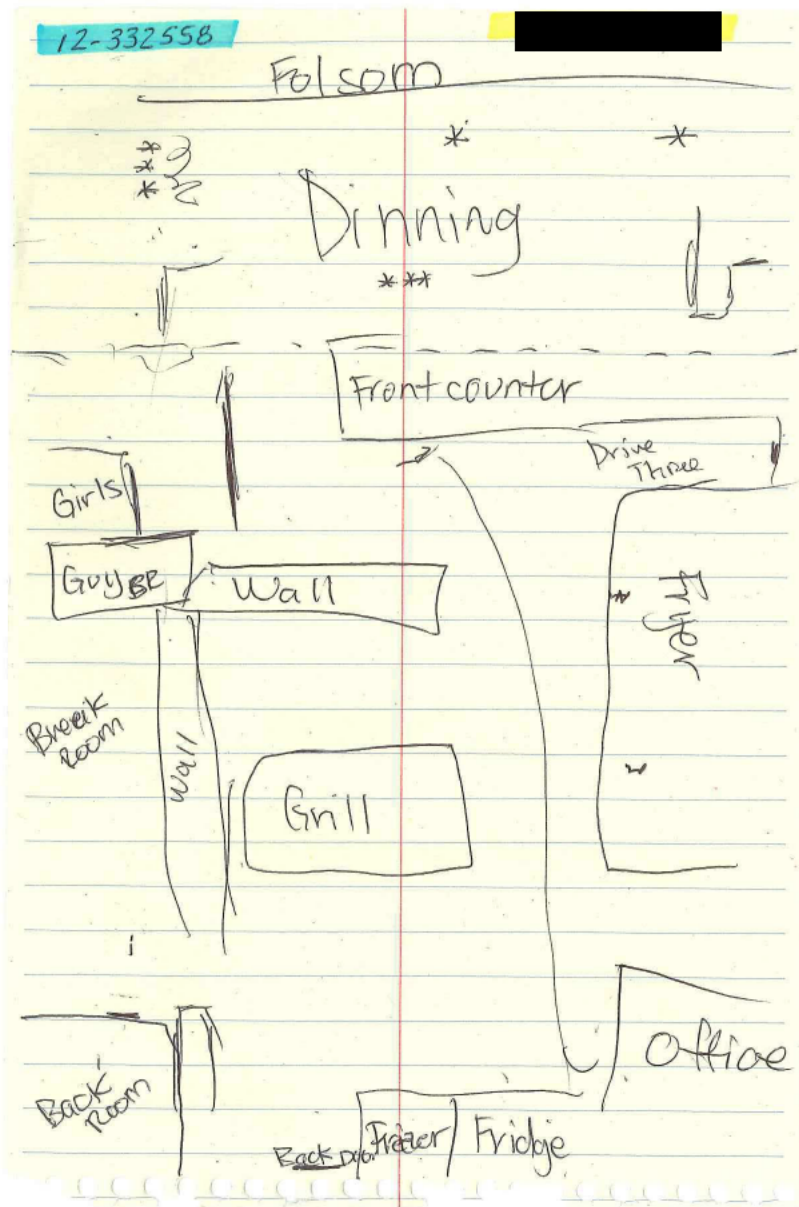 12-332558
Folsom
* *
** 3
* 2
Dinning
***
Front counter
Drive
Three
Girls
Guy BR
Wall
Fryer
Break
Room
Wall
Grill
Office
Back
Room
Back Doo
Frezer
Fridge